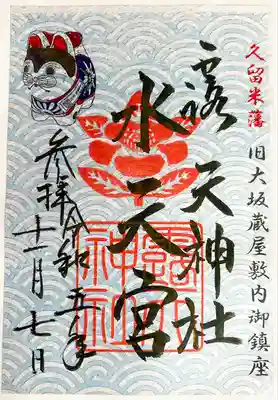 久留米藩 旧大坂蔵屋敷内御鎮座
露天神社
水天宮
参拝 令和五年
十一月七日